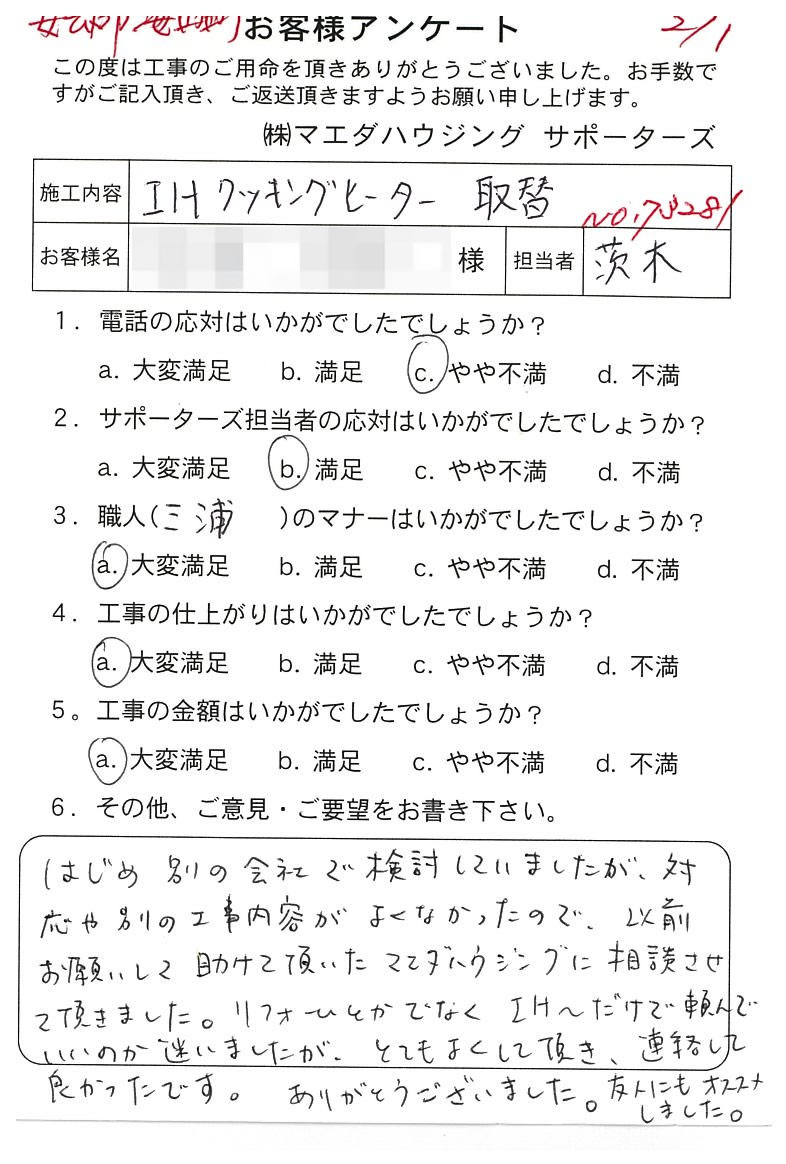 お客様アンケート
2/1
この度は工事のご用命を頂きありがとうございました。お手数で
すがご記入頂き、ご返送頂きますようお願い申し上げます。
㈱マエダハウジング サポーターズ
施工内容 IHクッキングヒーター 取替
お客様名 様 担当者 茨木
1. 電話の応対はいかがでしたでしょうか?
a. 大変満足 b. 満足 c. やや不満 d. 不満
2. サポーターズ担当者の応対はいかがでしたでしょうか?
a. 大変満足 b. 満足 c. やや不満 d. 不満
3. 職人(三浦 )のマナーはいかがでしたでしょうか?
a. 大変満足 b. 満足 c. やや不満 d. 不満
4. 工事の仕上がりはいかがでしたでしょうか?
a. 大変満足 b. 満足 c. やや不満 d. 不満
5。工事の金額はいかがでしたでしょうか?
a. 大変満足 b. 満足 c. やや不満 d. 不満
6. その他、ご意見・ご要望をお書き下さい。
はじめ 別の会社で検討していましたが、対
応や別の工事内容が よくなかったので、以前
お願いして助けて頂いたマエダハウジングに相談させ
て頂きました。リフォームとかでなく IH〜だけで頼んで
いいのか迷いましたが、とてもよくして頂き、連絡して
良かったです。 ありがとうございました。友人にもオススメ
しました。